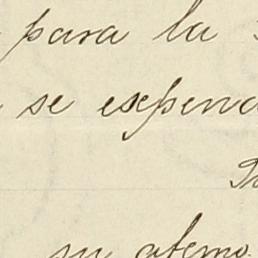 para la
se expend
su atemo